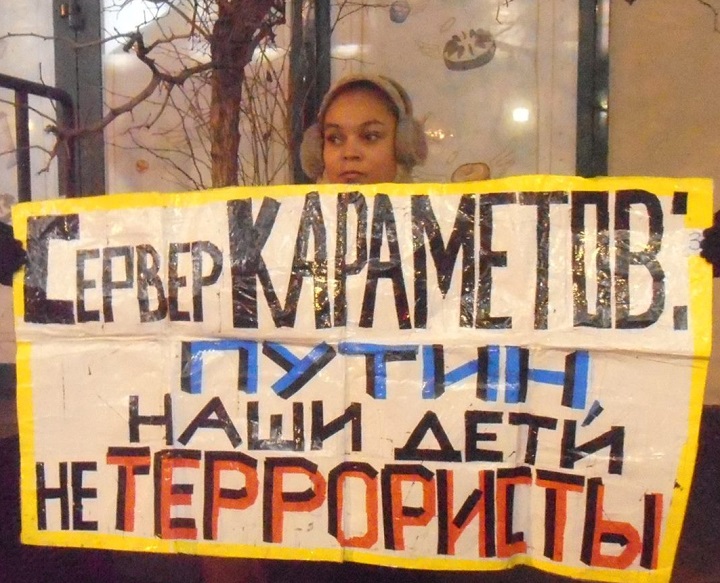 Сервер КАРАМЕТОВ:
ПУТИН,
НАШИ ДЕТИ
НЕ ТЕРРОРИСТЫ